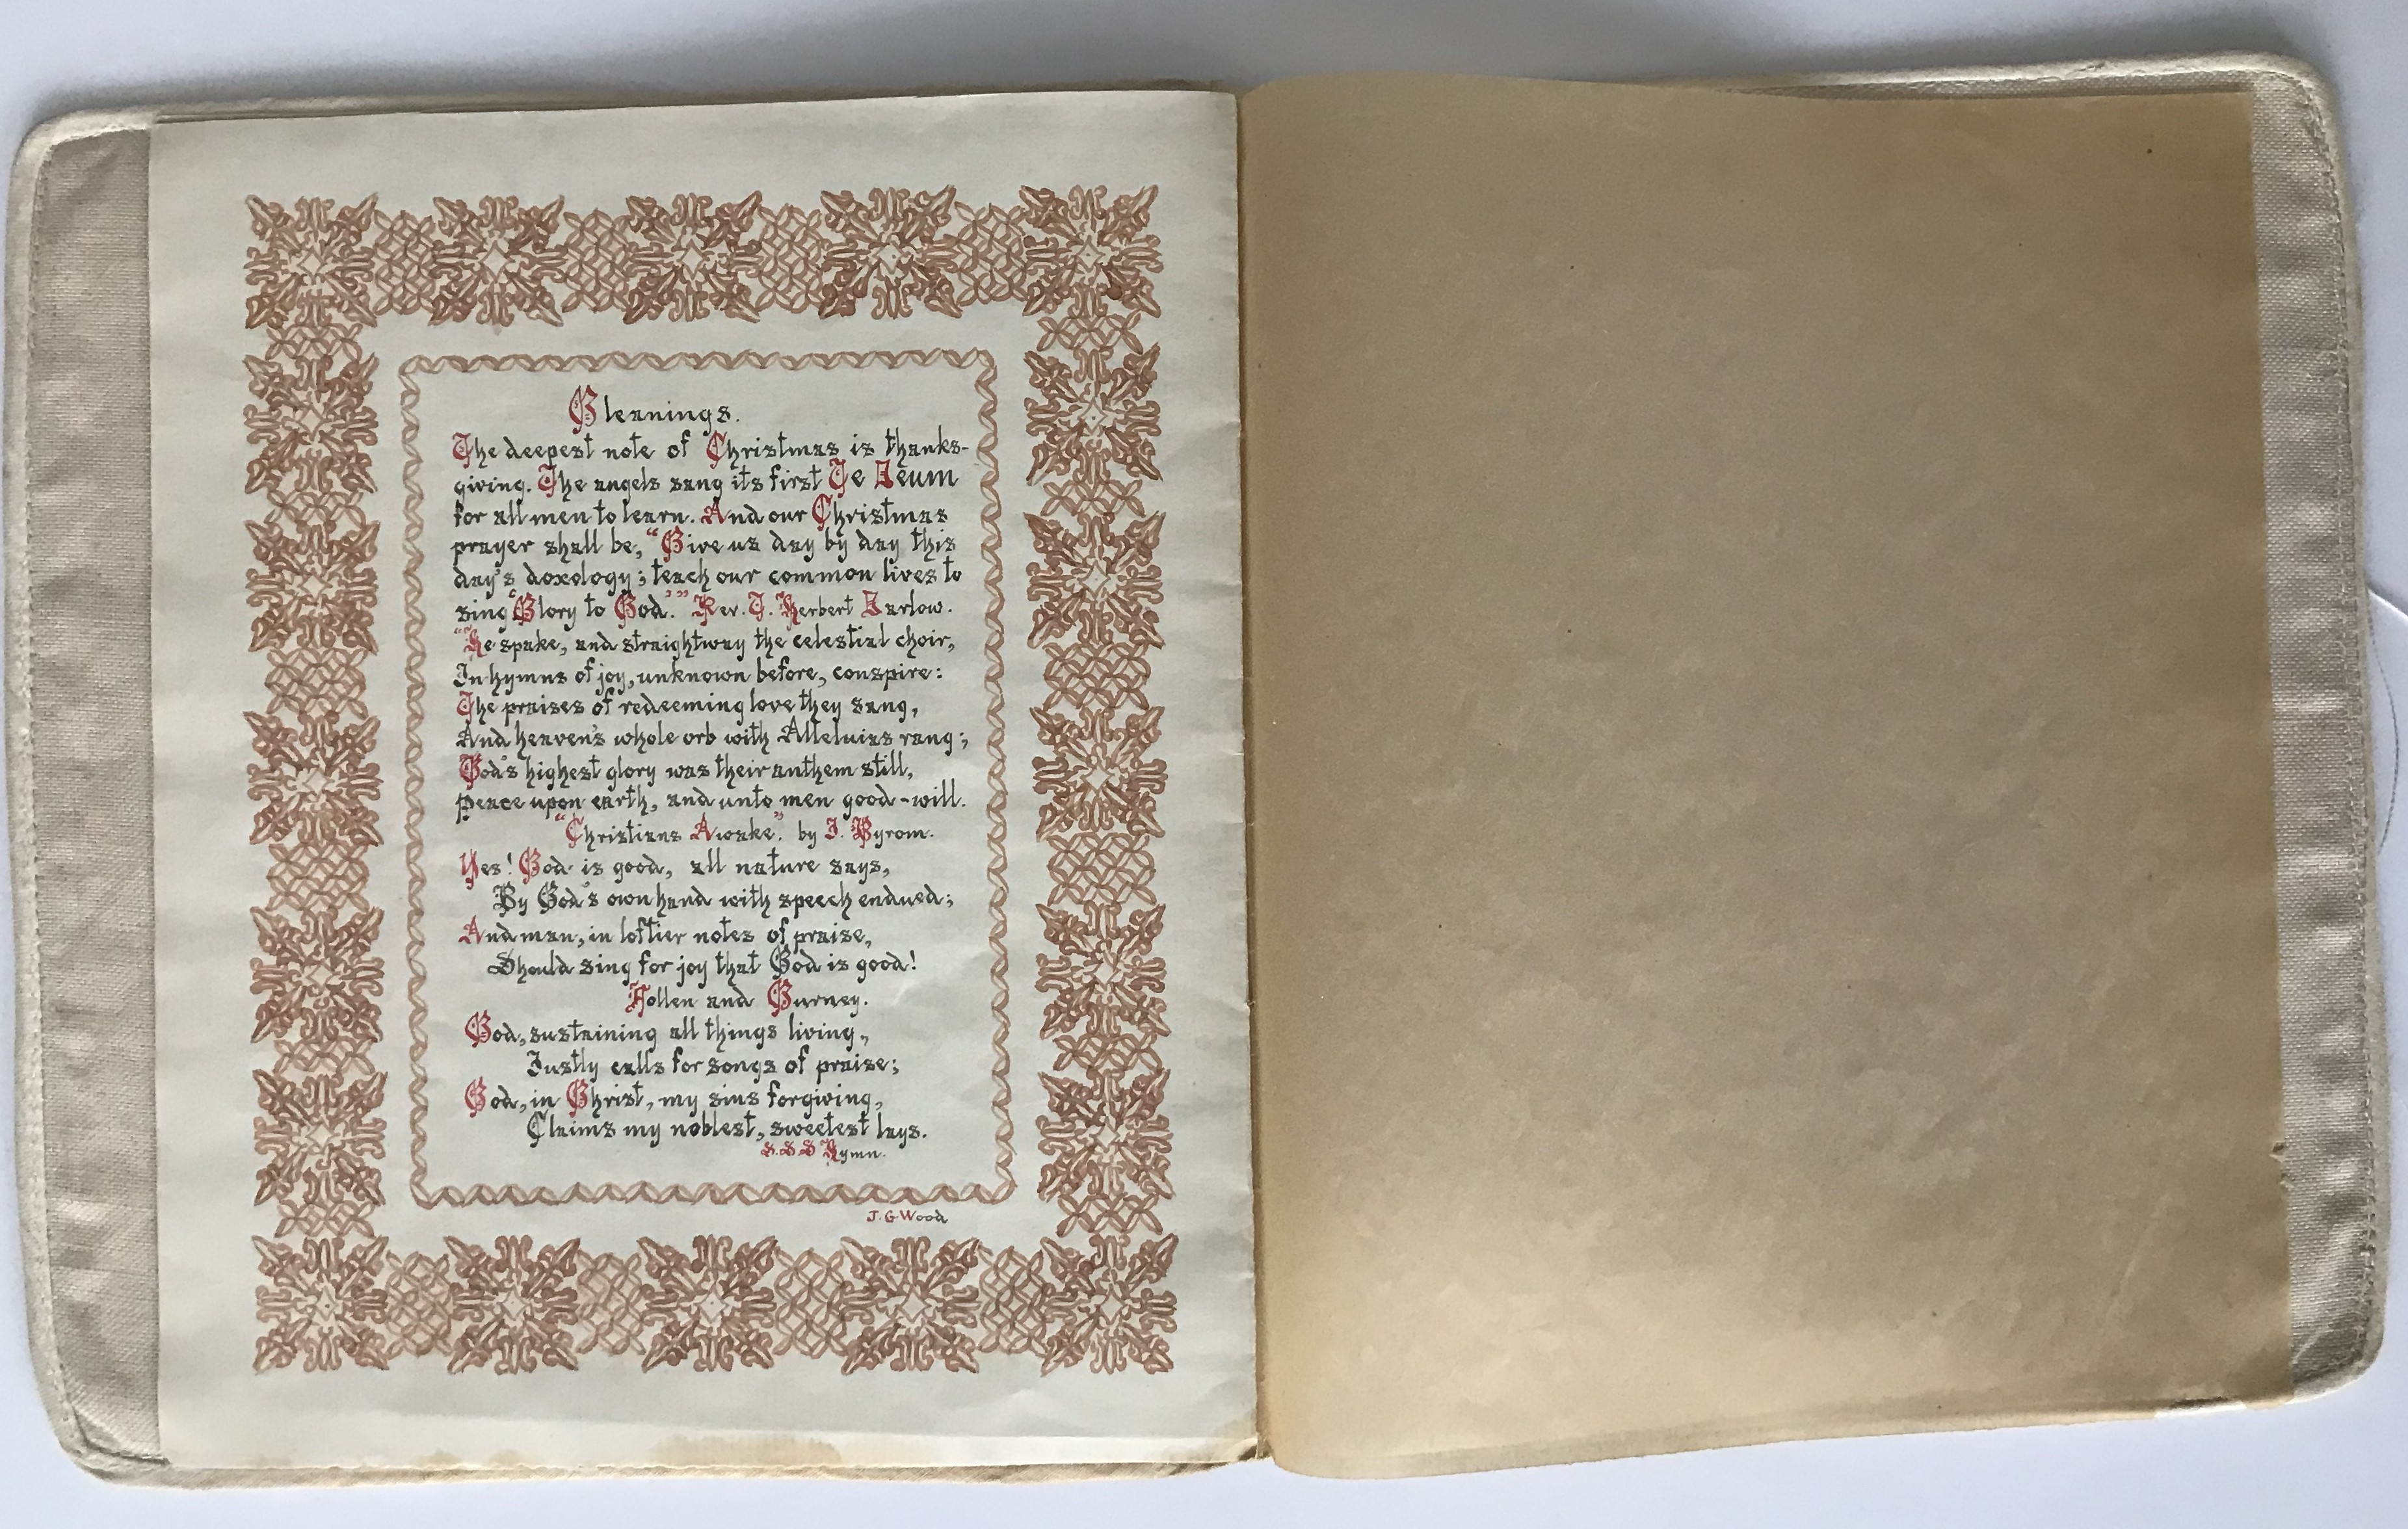 Gleanings.
The deepest note of Christmas is thanks-
giving. The angels sang its first Te Deum
for all men to learn. And our Christmas
prayer shall be, "Give us day by day this
day's doxology; teach our common lives to
sing 'Glory to God.'" Rev. T. Herbert Darlow.
"He spake, and straightway the celestial choir,
In hymns of joy, unknown before, conspire:
The praises of redeeming love they sang,
And heaven's whole orb with Alleluias rang;
God's highest glory was their anthem still,
Peace upon earth, and unto men good-will.
"Christians Awake." by J. Byrom.
Yes! God is good, all nature says,
By God's own hand with speech endued;
And man, in loftier notes of praise,
Should sing for joy that God is good!
Follen and Gurney.
God, sustaining all things living,
Justly calls for songs of praise;
God, in Christ, my sins forgiving,
Claims my noblest, sweetest lays.
S.S.S Hymn.
J. G Wood